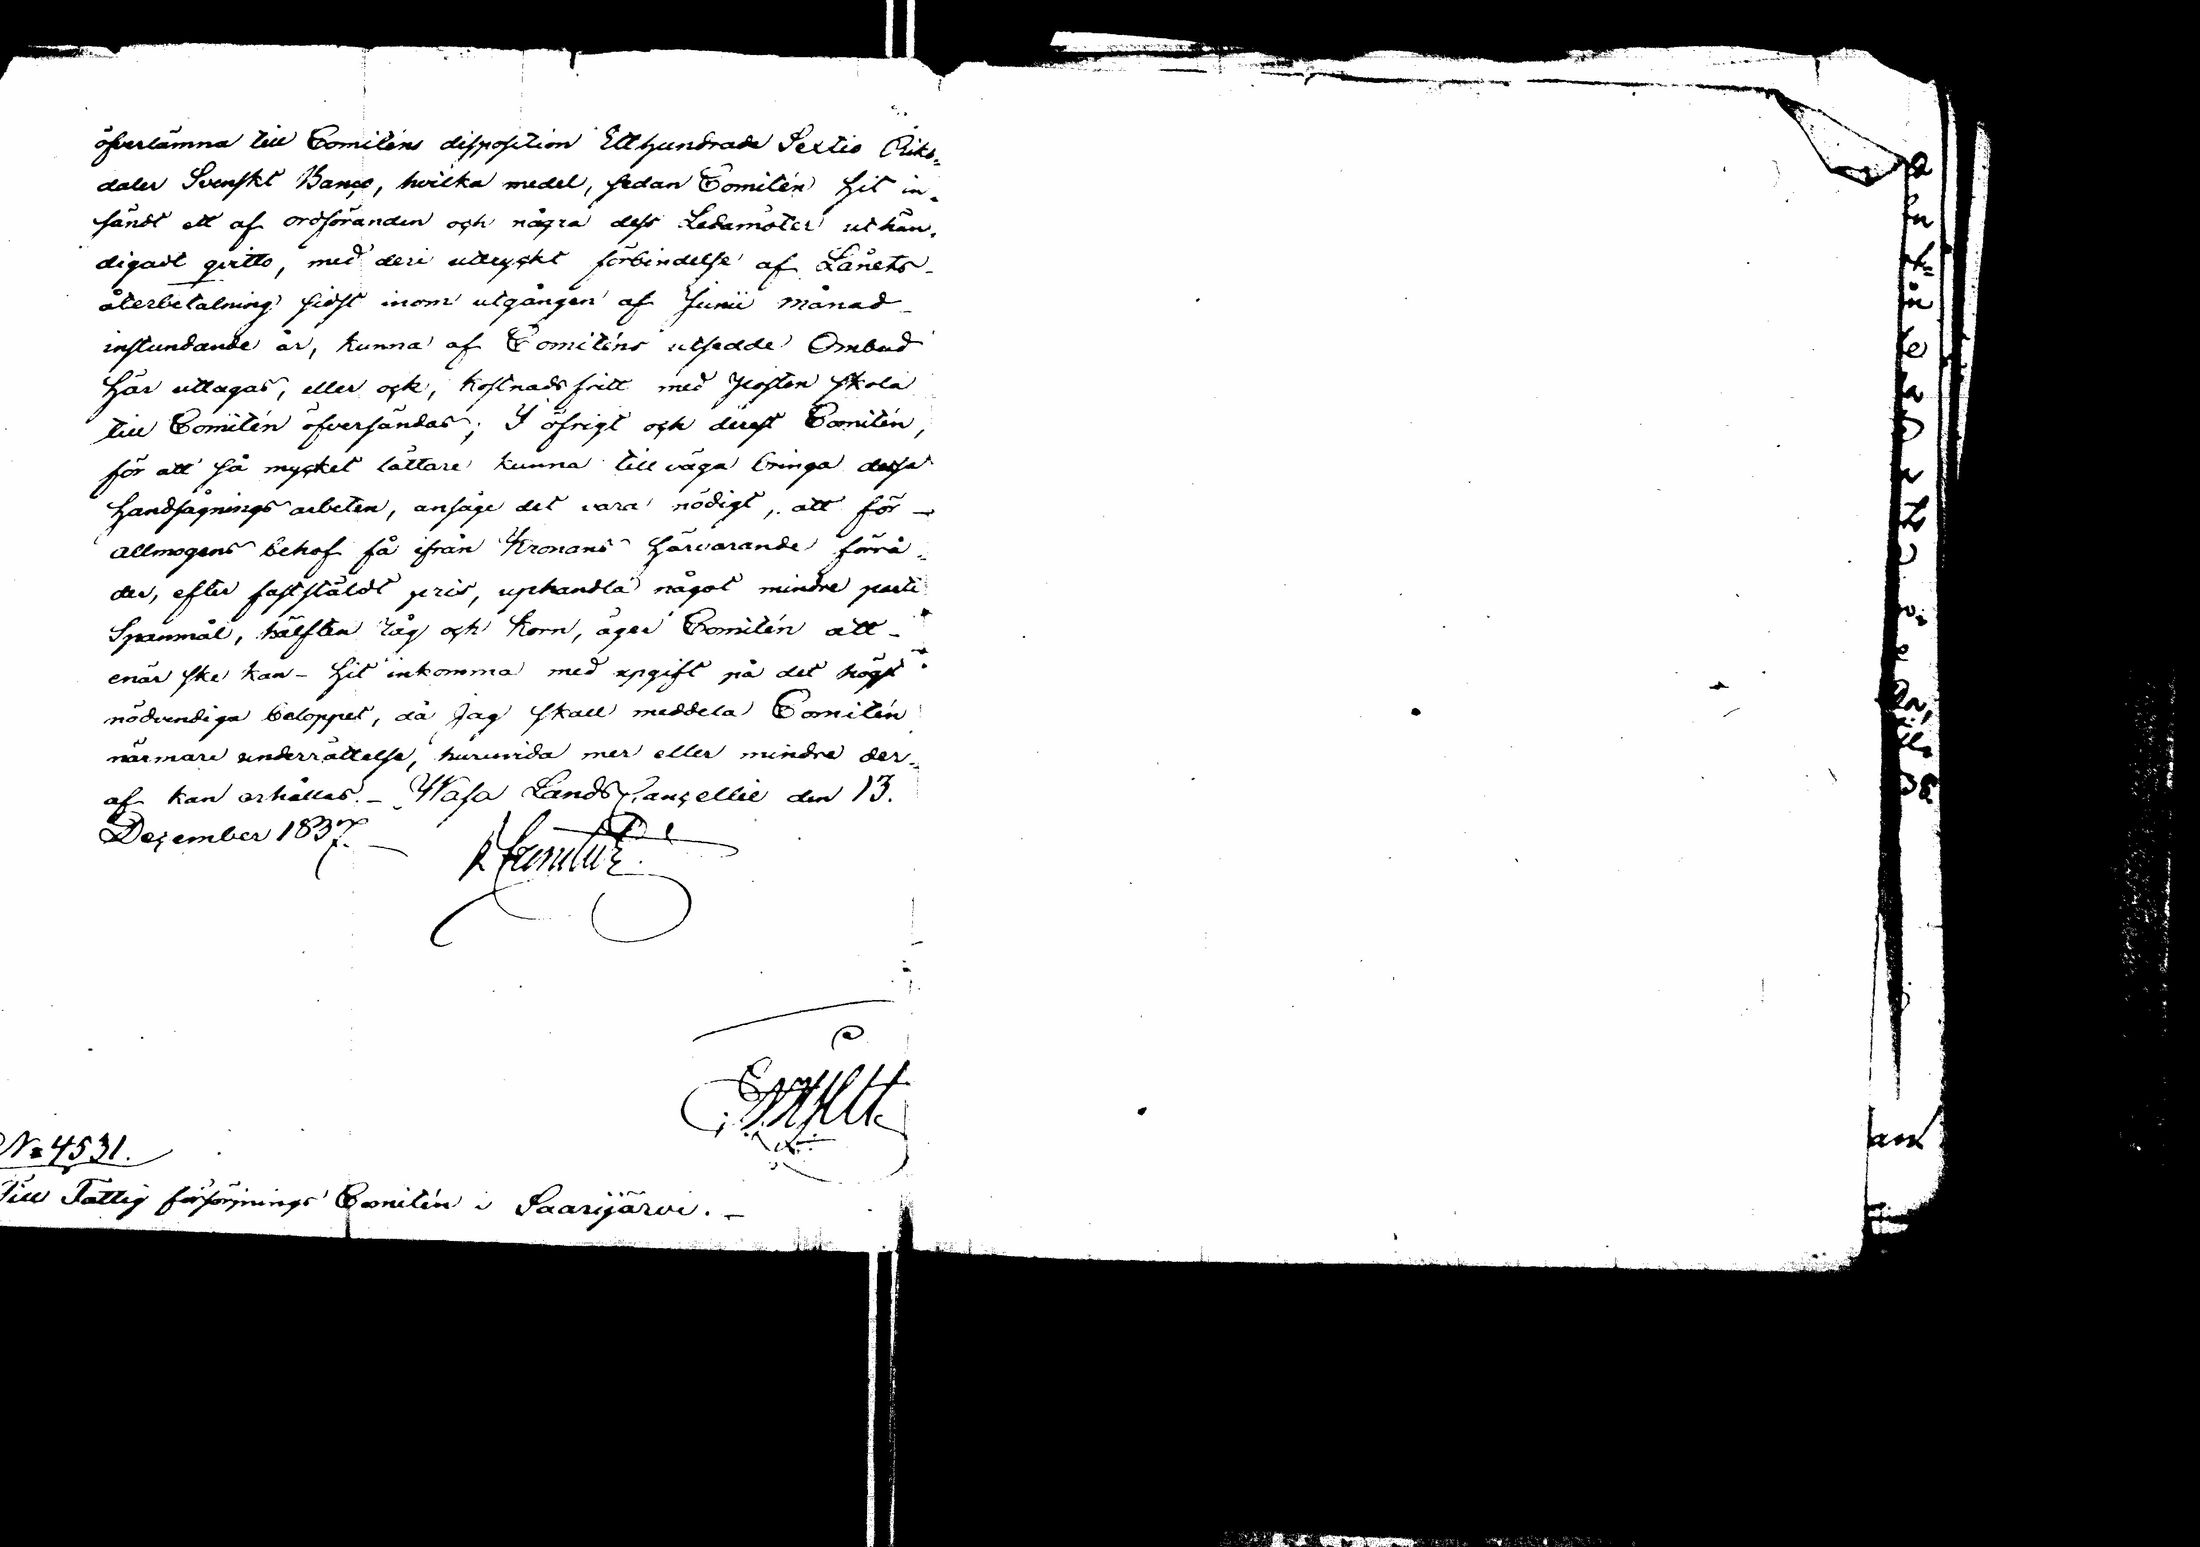 öfverlämna till Comiténs disposition Etthundrade Sextio Riks-
daler Svenskt Banco, hvilka medel, sedan Comitén hit in-
sändt ett af ordföranden och några dess Ledamöter uthän-
digadt qvitto, med deri uttryckt förbindelse af Lånets
återbetalning sidst inom utgången af Junii månad
instundande år, kunna af Comiténs utsedde Ombud
här uttagas, eller ock, kostnadsfritt med posten skola
till Comitén öfversändas; I öfrigt och derest Comitén,
för att så mycket lättare kunna till väga bringa dessa
handsågnings arbeten, ansåge det vara nödigt, att för
allmogens behof få ifrån Kronans härvarande förrå-
der, efter faststäldt pris, uphandla något mindre parti
Spanmål, hälften råg och korn, äger Comitén att -
enär ske kan - hit inkomma med upgift på det högst
nödvendiga beloppet, då Jag skall meddela Comitén
närmare underrättelse, huruvida mer eller mindre der-
af kan erhållas. - Wasa Lands Cancellie den 13.
December 1837. -
No 4531.
Till Fattig försörjnings Comitén i Saarijärvi. -